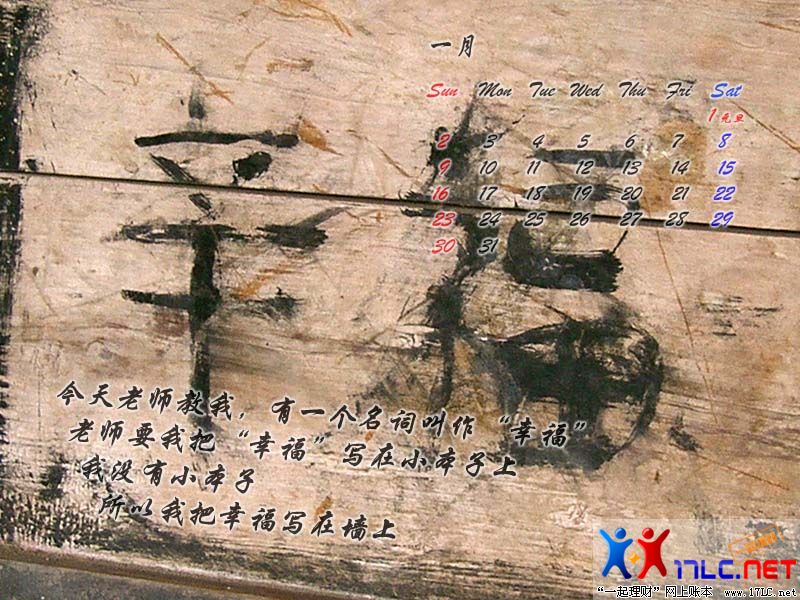 一月
Sun Mon Tue Wed Thu Fri Sat
1 元旦
2 3 4 5 6 7 8
9 10 11 12 13 14 15
16 17 18 19 20 21 22
23 24 25 26 27 28 29
30 31
幸福
今天老师教我，有一个名词叫作“幸福”
老师要我把“幸福”写在小本子上
我没有小本子
所以我把幸福写在墙上
17LC.NET
“一起理财”网上账本 www.17LC.net